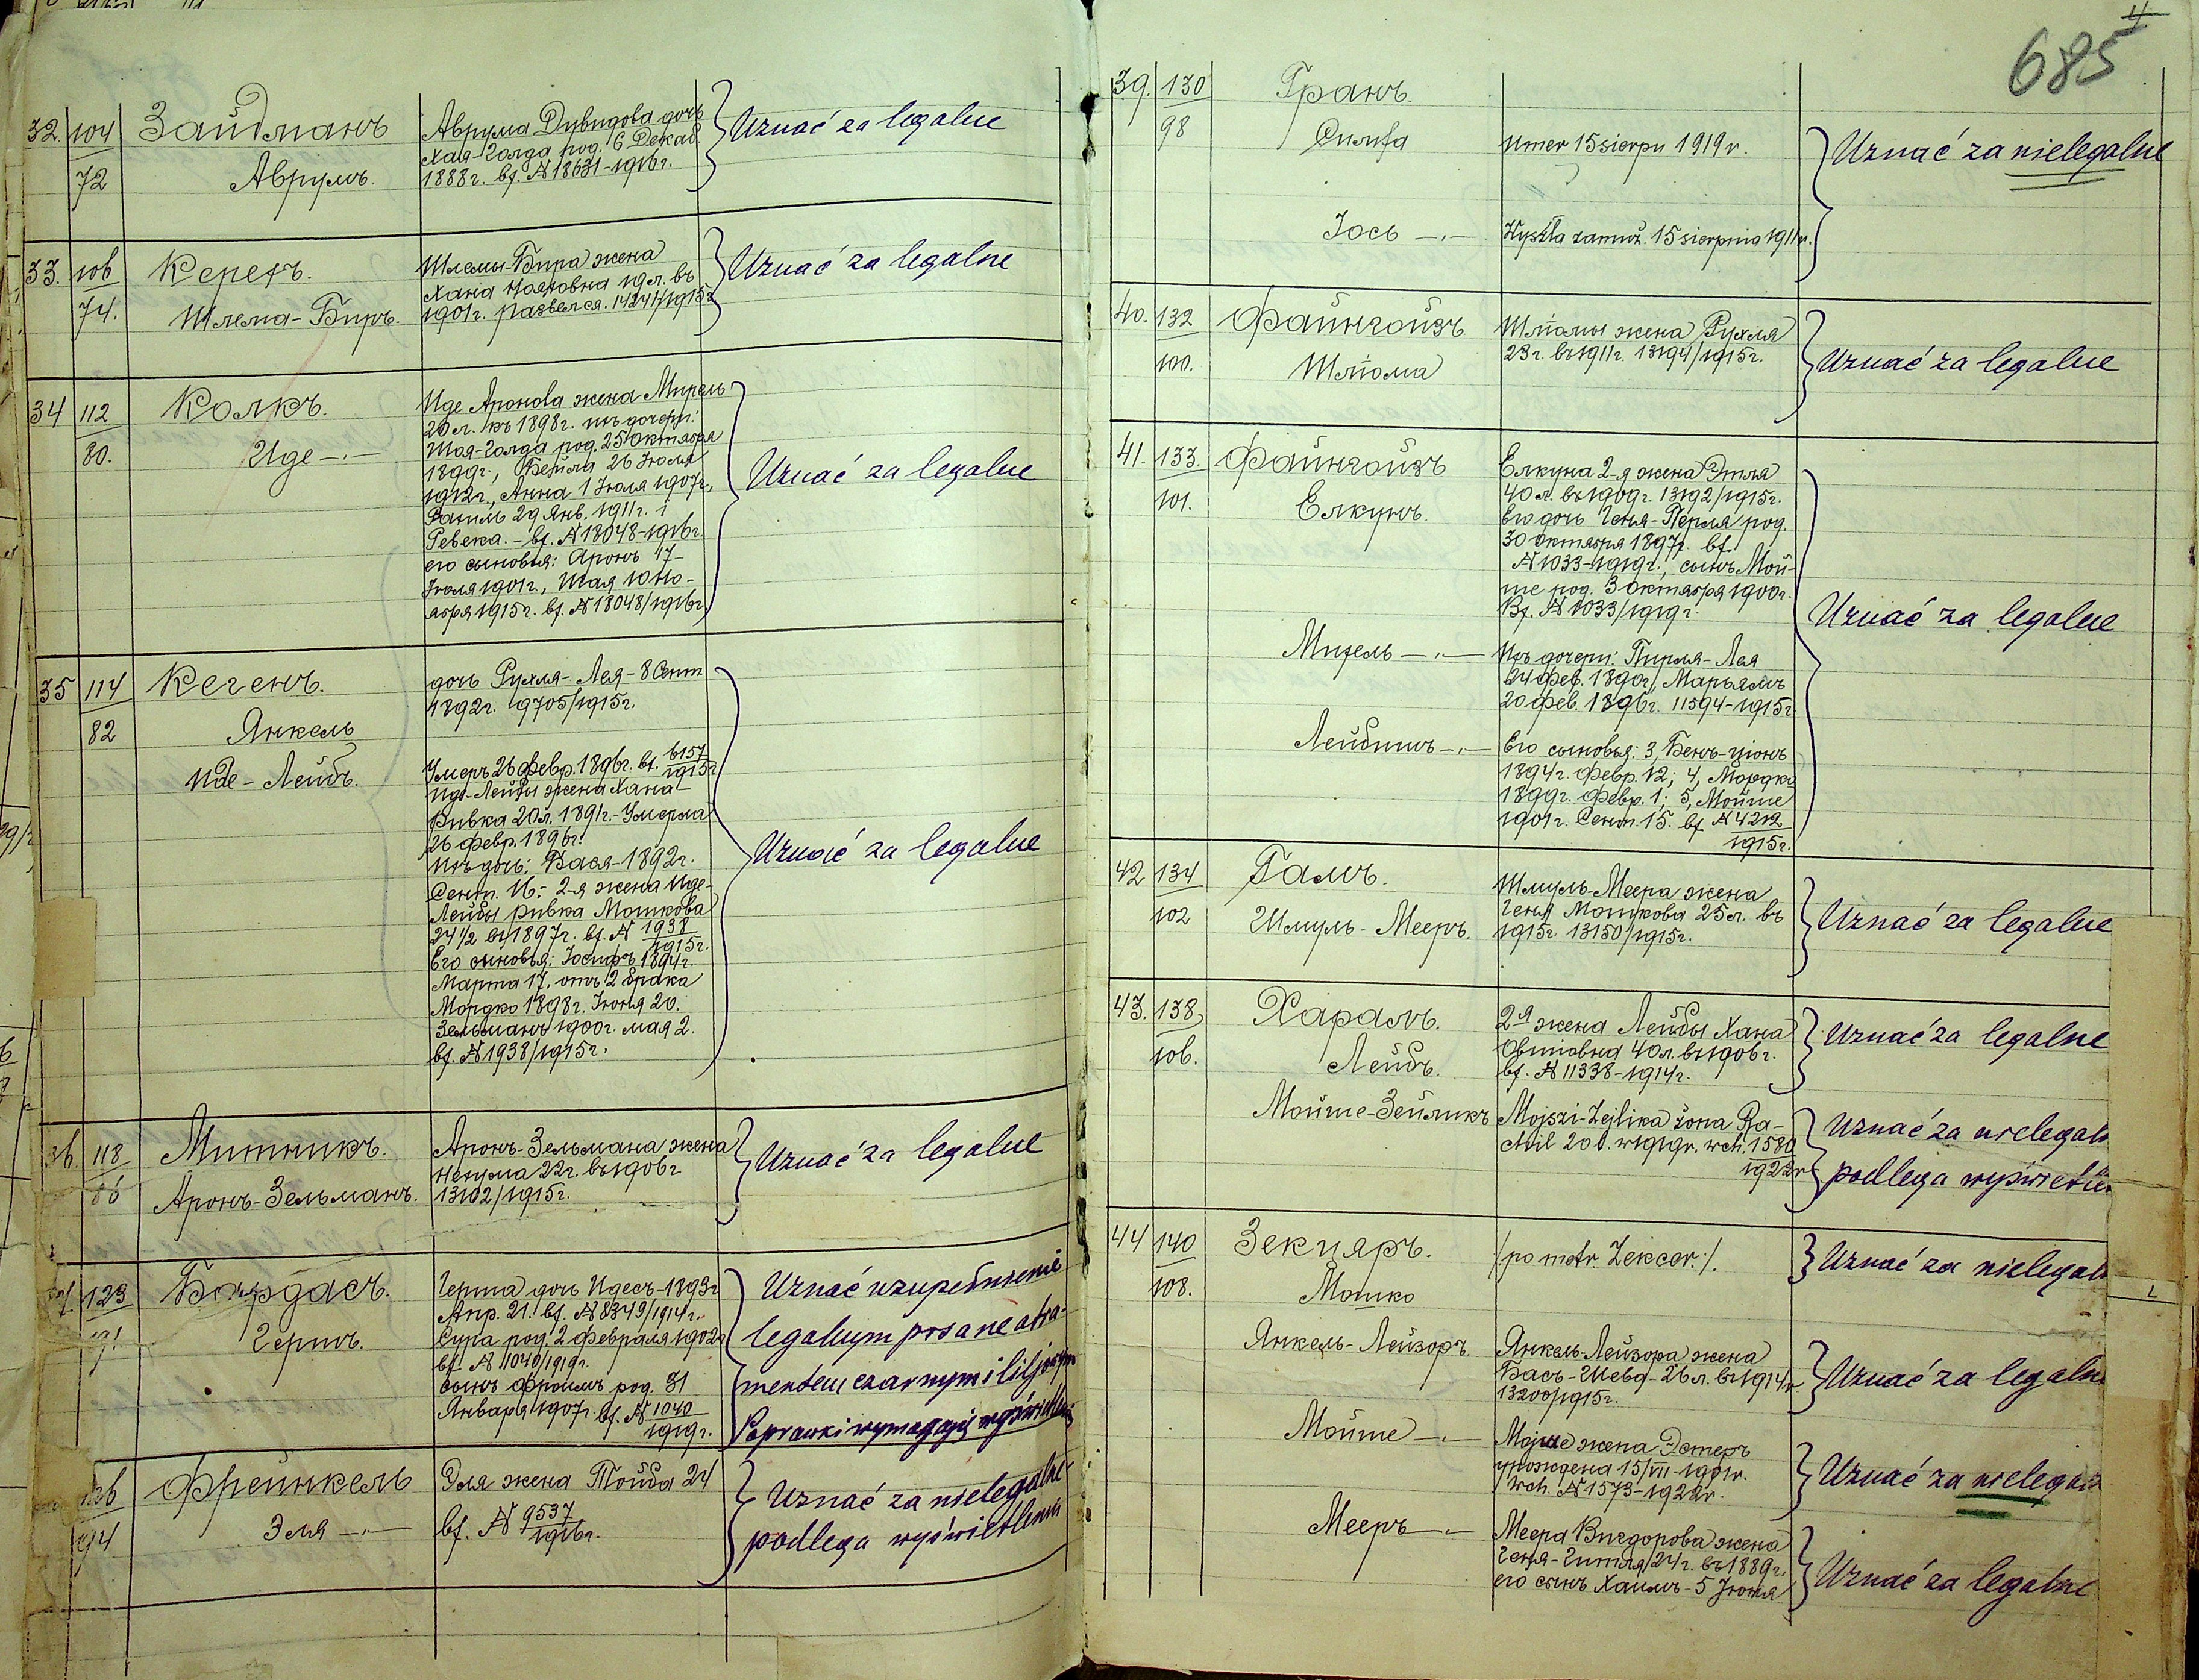 685
32. 104 Зайдманъ Аврума Дувидова дочь Uznać za legalne
Хая-Голда род. 6 Декаб.
72 Аврумъ. 1888г. вх. № 18631-1916г.
33. 106 Керехъ. Шлемы-Бира жена Uznać za legalne
Хана 19л. въ
74. Шлема-Биръ. 1901г. развелся. 14244/1915г
34 112 Колкъ. Иде Аронова жена Мирель
20л. въ 1898г. ихъ дочери:
80. Иде —·— Шая-Голда род. 25 Октября Uznać za legalne
1899г., Фейга 26 Іюля
1912г., Анна 1 Іюля 1907г.,
Рахиль 29 Янв. 1911г. і
Ревека. - вх. № 18048-1916г.
его сыновья: Аронъ 17
Іюля 1901г., Шая 10 Но-
ября 1915г. вх. № 18048/1916г.
35 114 Кегенъ. дочь Рухля-Лея-8 Сент
1892г. 9705/1915г.
82 Янкель
Иде-Лейбъ. Умеръ 26 февр. 1896г. вх. 6157/1915г
Иде-Лейбы жена Хана-
Ривка 20л. 1891г.-Умерла
26 февр. 1896г.
Ихъ дочь: Бася-1892г. Uznać za legalne
Сент. 16.- 2-я жена Иде-
Лейбы Ривка Мошкова
24½ въ 1897г. вх. № 1938/1915г.
Его сыновья: Іосифъ 1894г.
Марта 17, отъ 2 брака
Мордко 1898г. Іюня 20.
Зельманъ 1900г. мая 2.
вх. № 1938/1915г.
36. 118 Митникъ. Аронъ-Зельмана жена Uznać za legalne
Нехума 22г. въ 1906г
86 Аронъ-Зельманъ. 13102/1915г.
123 Бардасъ. Герша дочь Идесъ-1893г Uznać uzupełnienie
Апр. 21. вх. № 8349/1914г. legalnym pisane atra-
91 Гершъ. Сура род. 2 февраля 1902г
вх. № 1040/1919г. mentem czarnym i liljowym
сынъ Фроимъ род. 31
Января 1907г. вх. № 1040/1919г. Poprawki wymagają wyświetlenia
Фрейнкель Эля жена Тойба 24 Uznać za nielegalne
94 Эля —·— вх. № 9537/1916г. podlega wyświetleniu
39. 130 Гранъ.
98 umer 15 sierpn 1919r. Uznać za nielegalne
Іось —·— Wyszła zamuż. 15 sierpnia 1911r.
40. 132 Файнгойзъ Шліомы жена Рухля
23г. въ 1911г. 13194/1915г. Uznać za legalne
100. Шліома
41. 133. Файнгойзъ Елкуна 2-я жена Этля
40л. въ 1909г. 13192/1915г.
101. Елкунъ. Его дочь Геня-Перля род.
30 Октября 1897г. вх.
№ 1033-1919г., сынъ Мой-
ше род. 3 Октября 1900г.
Вх. № 1033/1919г. Uznać za legalne
—·— Ихъ дочери: Пирля-Лея
24 фев. 1890г, Марьямъ
20 фев. 1896г. 11594-1915г
Лейбишъ —·— Его сыновья: 3, Бенъ-Ціонъ
1894г. Февр. 12; 4, Мордко
1899г. Февр. 1; 5, Мойше
1901г. Сент. 15. вх № 4212/1915г.
42 134 Гамъ. Шмуль-Меера жена
Геня Мошкова 25л. въ Uznać za legalne
102 Шмуль-Мееръ. 1915г. 13150/1915г.
43. 138 Харамъ. 2я жена Лейбы Хана
Овшіовна 40л. въ 1906г. Uznać za legalne
106. Лейбъ. вх. № 11338-1914г.
Мойше-Зейликъ Mojszi-Zejlika żona Ra- Uznać za nielegaln
chil 20 l. w 1919r. wch. 1580/1922r podlega wyświetlen
44 140 Зекцяръ. /po metr. Zekcer:/. Uznać za nielegaln
108. Мошко
Янкель-Лейзоръ Янкель-Лейзора жена
Бась-Шева-26л. въ 1914г Uznać za legalne
13200/1915г.
Мойше —·— Мойше жена Эстеръ
урождена 15/VII-1901r. Uznać za nielegaln
Wch. № 1573-1922r.
Мееръ —·— Меера Вигдорова жена
Геня-Гитля 24г. въ 1889г.
его сынъ Хаимъ-5 Іюня Uznać za legalne